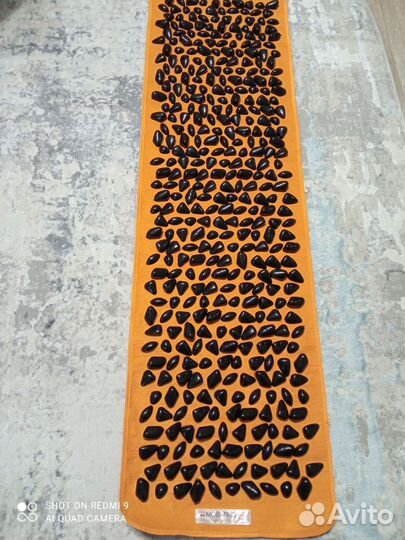 SHOT ON REDMI 9
AI QUAD CAMERA
Avito